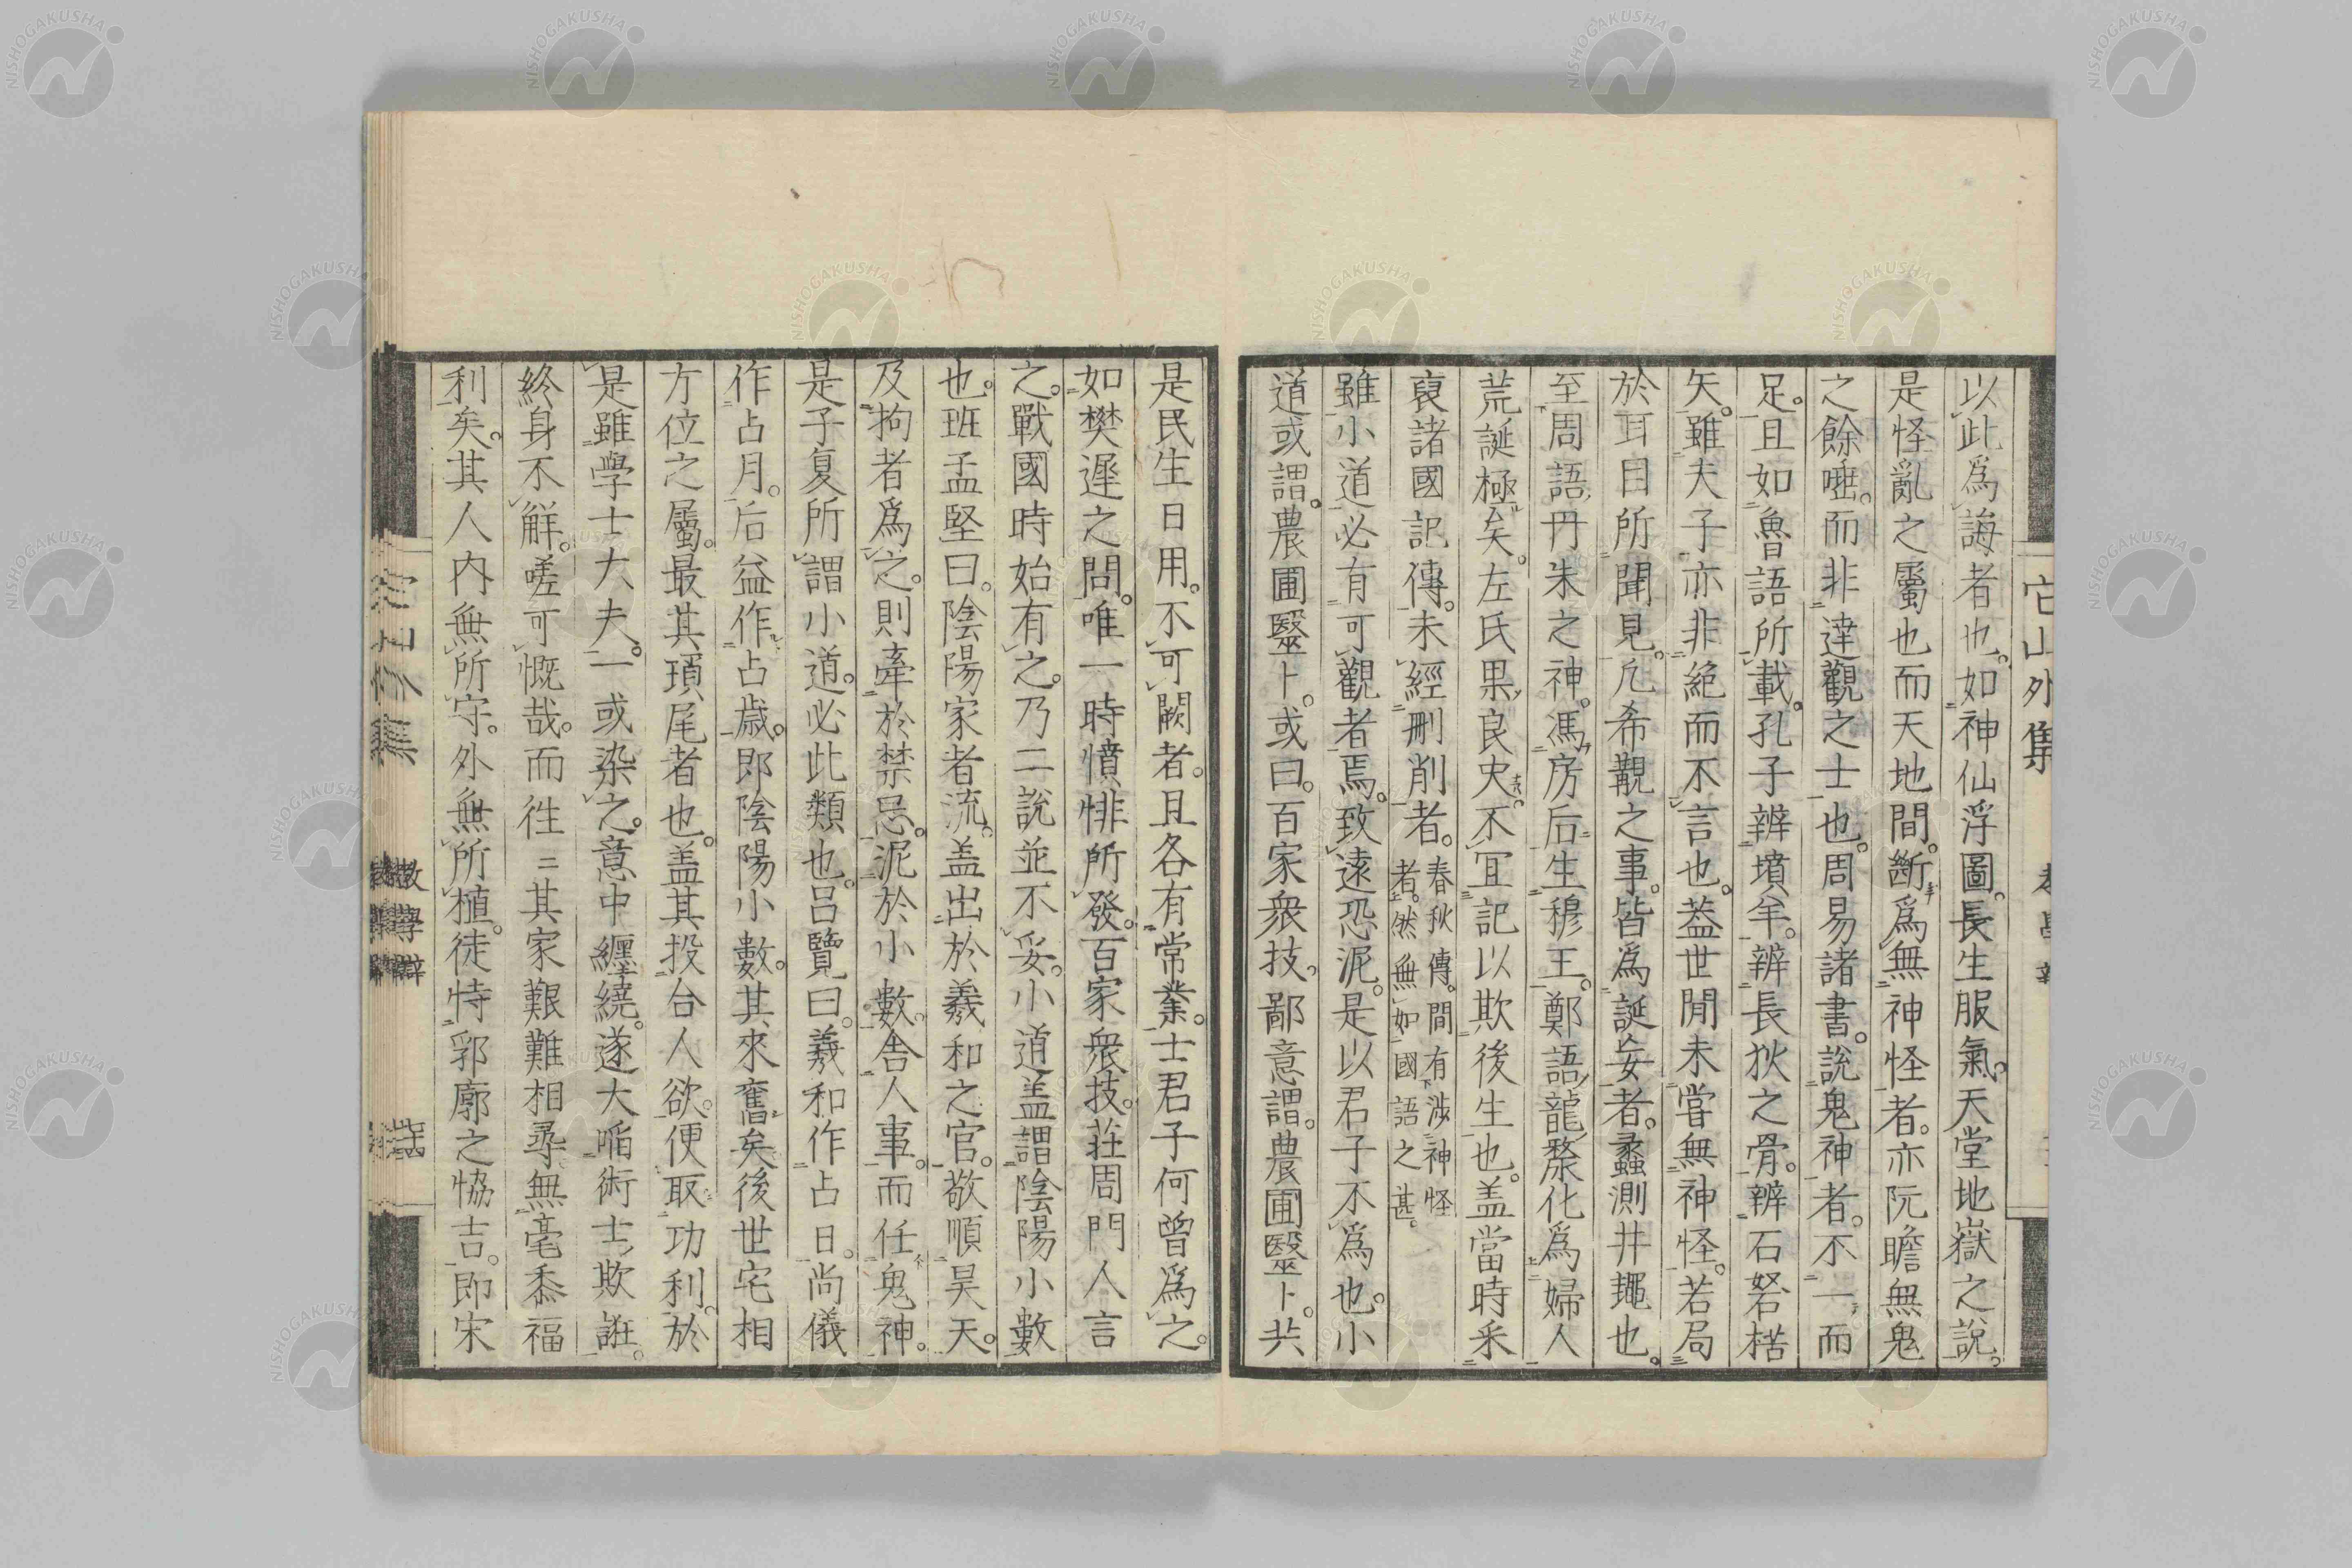 以此爲誨者也。如神仙浮圖。長生服氣。天堂地嶽之說。
是怪亂之屬也而天地間。斷爲無神怪者。亦阮瞻無鬼
之餘唾。而非達觀之士也。周易諸書。說鬼神者。不一而
足。且如魯語所載。孔子辨墳羊。辨長狄之骨。辨石砮楛
矢。雖夫子亦非絶而不言也。葢世間未嘗無神怪。若局
於耳目所聞見。凢希覯之事。皆爲誕妄者。蠡測井䵷也。
至周語。丹朱之神。馮房后生穆王。鄭語龍漦化爲婦人
荒誕極矣。左氏果良史。不冝記以欺後生也。盖當時采
裒諸國記傳。未經刪削者。春秋傳。間有渉神怪
者。然無如國語之甚。
雖小道必有可觀者焉。致遠恐泥。是以君子不爲也。小
道或謂。農圃醫卜。或曰。百家衆技。鄙意謂。農圃醫卜。共
是民生日用。不可闕者。且各有常業。士君子何曾爲之。
如樊遲之問。唯一時憤悱所發。百家衆技。莊周門人言
之。戰國時始有之。乃二說並不妥。小道盖謂陰陽小數
也。班孟堅曰。陰陽家者流。盖出於羲和之官。敬順昊天。
及拘者爲之。則牽於禁忌。泥於小數。舍人事。而任鬼神。
是子夏所謂小道。必此類也。呂覽曰。羲和作占日。尚儀
作占月。后益作占歳。即陰陽小數。其來舊矣後世宅相
方位之屬。最其瑣尾者也。盖其投合人欲。便取功利。於
是雖學士大夫。一或染之。意中纒繞。遂大啗術士欺誑。
終身不觧。嗟可慨哉。而徃〻其家艱難相尋無毫黍福
利矣。其人内無所守。外無所植。徒恃郛廓之協吉。即宋
它山外集